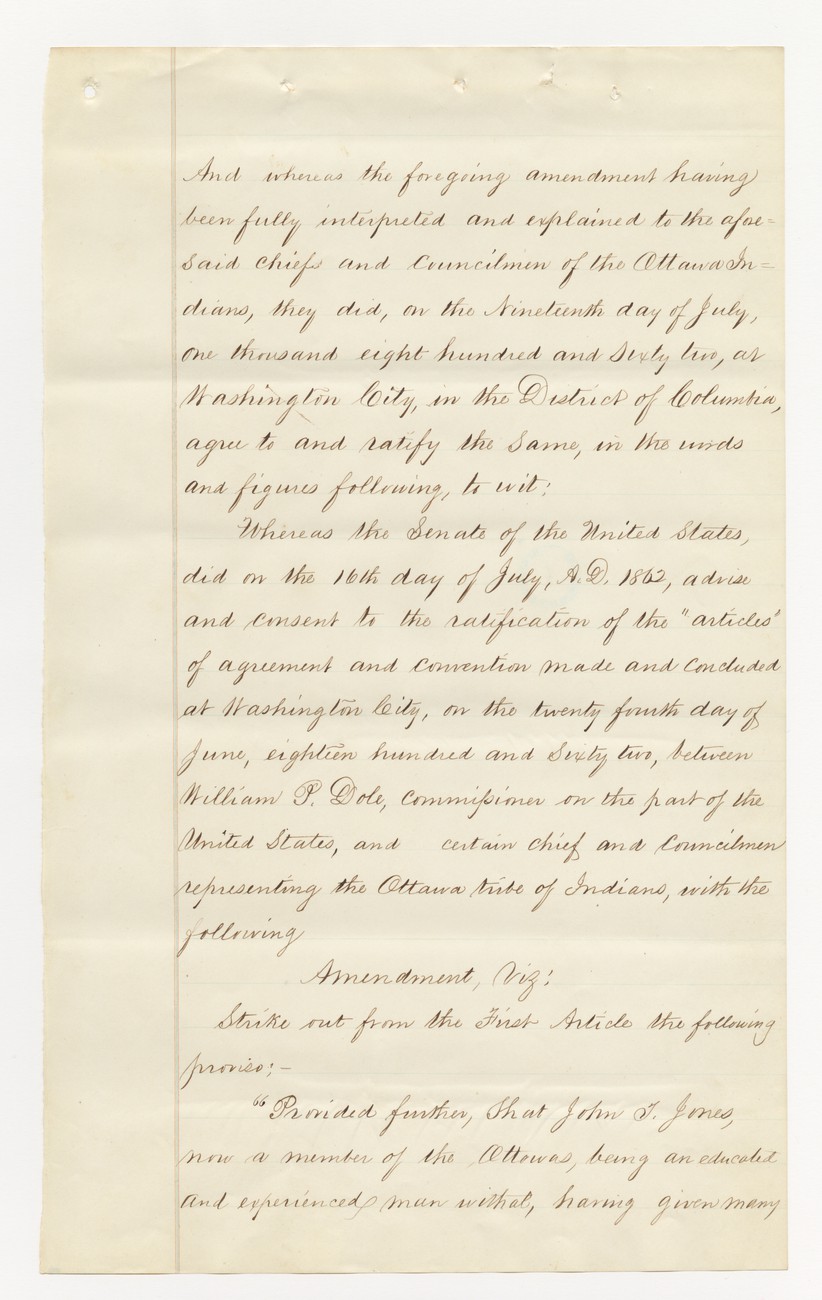 And whereas the foregoing amendment having
been fully interpreted and explained to the afore=
said chiefs and Councilmen of the Ottawa In=
dians, they did, on the Nineteenth day of July,
one thousand eight hundred and sixty two, at
Washington City, in the District of Columbia,
agree to and ratify the same, in the words
and figures following, to wit:
Whereas the Senate of the United States,
did on the 16th day of July, A.D. 1862, advise
and consent to the ratification of the "articles"
of agreement and convention made and concluded
at Washington City, on the twenty fourth day of
June, eighteen hundred and sixty two, between
William P. Dole, commissioner on the part of the
United States, and certain chief and Councilmen
representing the Ottawa tribe of Indians, with the
following
Amendment, Viz:
Strike out from the First Article the following
proviso:-
"Provided further, That John T. Jones,
now a member of the Ottowas, being an educated
and experienced man withal, having given many